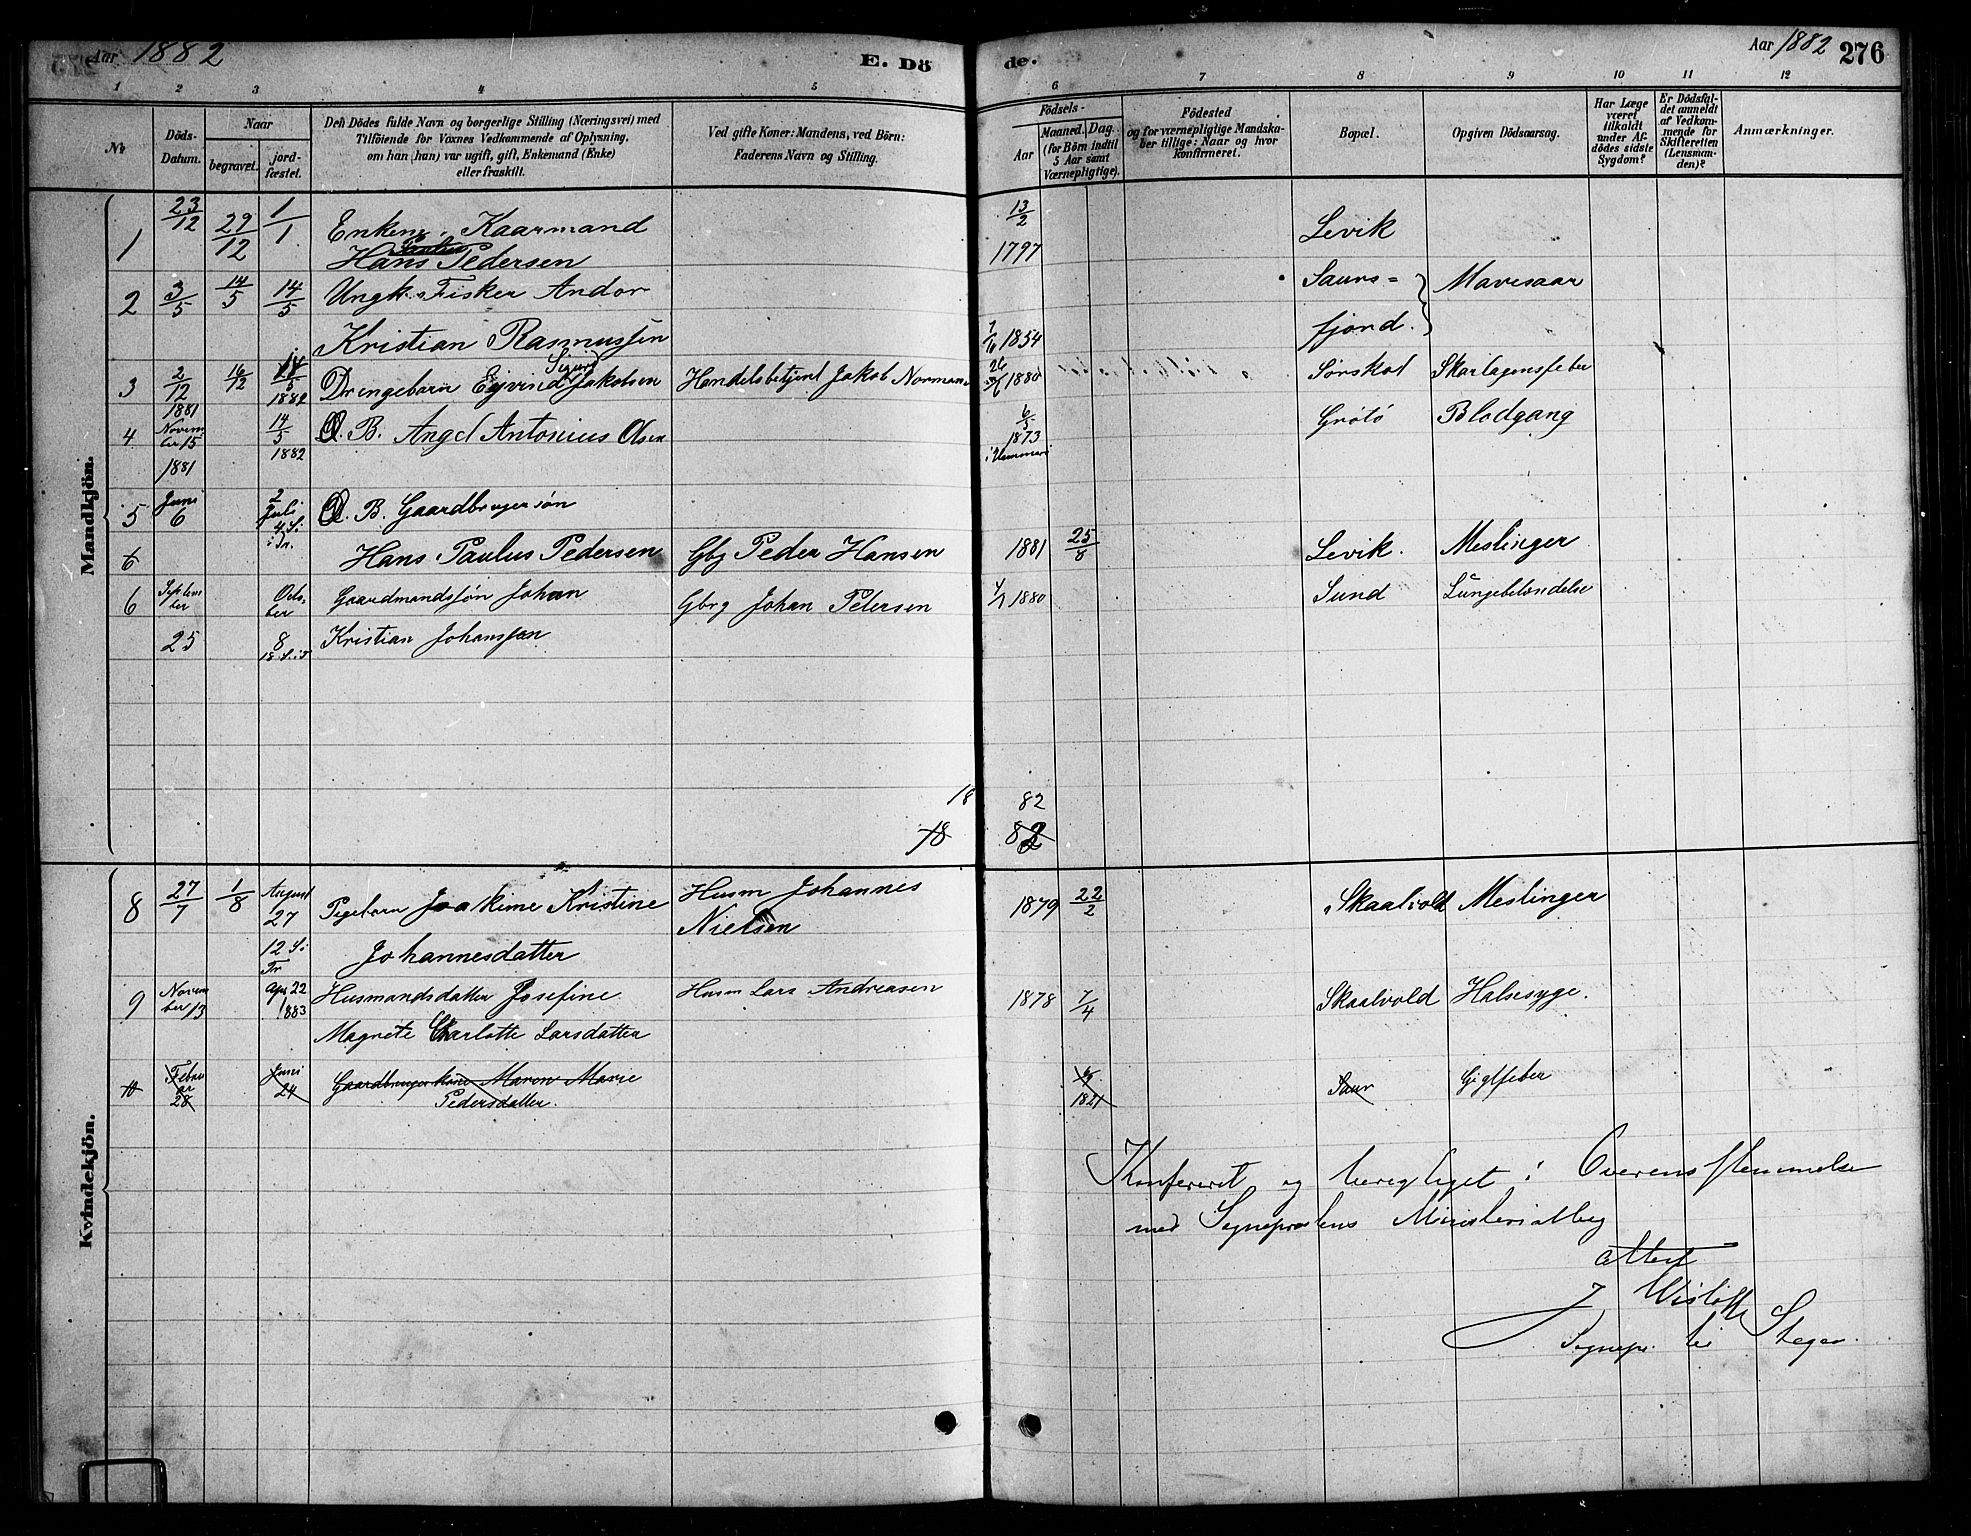 Aar 1882
E. Dö
de.
Aar 1882
276
1 2 3 4 5 6 7 8 9 10 11 12
No
Döds-
Datum.
Naar
begravet.
jord-
fæstet.
Den Dödes fulde Navn og borgerlige Stilling (Næringsvei) med
Tilföiende for Voxnes Vedkommende af Oplysning,
om han (hun) var ugift, gift, Enkemand (Enke)
eller fraskilt.
Ved gifte Koner: Mandens, ved Börn:
Faderens Navn og Stilling.
Födsels-
Aar
Maaned. Dag.
(for Börn indtil
5 Aar samt
Værnepligtige).
Födested
og for værnepligtige Mandska-
ber tillige: Naar og hvor
konfirmeret.
Bopæl.
Opgiven Dödsaarsag.
Har Læge
været
tilkaldt
under Af-
dödes sidste
Sygdom?
Er Dödsfal-
det anmeldt
af Vedkom-
mende for
Skifteretten
(Lensman-
den)?
Anmærkninger.
Mandkjön.
1 23/12 29/12 1/1 Enkem. Kaarmand 13/2 Levik
Paulus
Hans Pedersen 1797
2 3/5 14/5 14/5 Ungk. Fisker Andor Saurs= Mavesaar
Kristian Rasmussen 1854 fjord.
3 2/12 1881 16/12 14/5 1882 Drengebarn Ejvind Sigurd Jakobsen Handelsbetjent Jakob Normann 26 1880 Sørskot Skarlagensfeber
4 Novem
ber 15 1881 14/5 1882 D. B. Angel Antonius Olsen 6/5 1873 Grötö Blodgang
i Hammerö
5 Juni 6 2 Juli 4 S. i Tr. D. B. Gaardbrugersön
6 Hans Paulus Pedersen Gbg Peder Hansen 1881 25/8 Levik. Meslinger
6 Septem
ber Octo
ber Gaardmandssøn Johan Gbrg Johan Petersen 1880 Sund Lungebetændelse
25 8 18 S. i T Kristian Johanssen
18 82
18 82
Kvindekjön.
8 27/7 1/8 August 27 Pigebarn Joakime Kristine Husm Johannes 1879 22/2 Skaalvold Meslinger
Nielsen
12 S. i Tr Johannesdatter
9 Novem
ber 13 Apr 22 1883 Husmandsdatter Josefine Husm Lars Andreasen 1878 7/4 Skaalvold Halssyge.
Magnete Charlotte Larsdatter
10 Febru
ar 28 Juni 24 Gaardbrugerkone Maren Marie 1821 Saur Gigtfeber
Pedersdatter.
Konfereret og berigtiget i Overensstemmelse
med Sogneprestens Ministerialbog
attest
J. Wisløff
Sognepr. til Stegen.